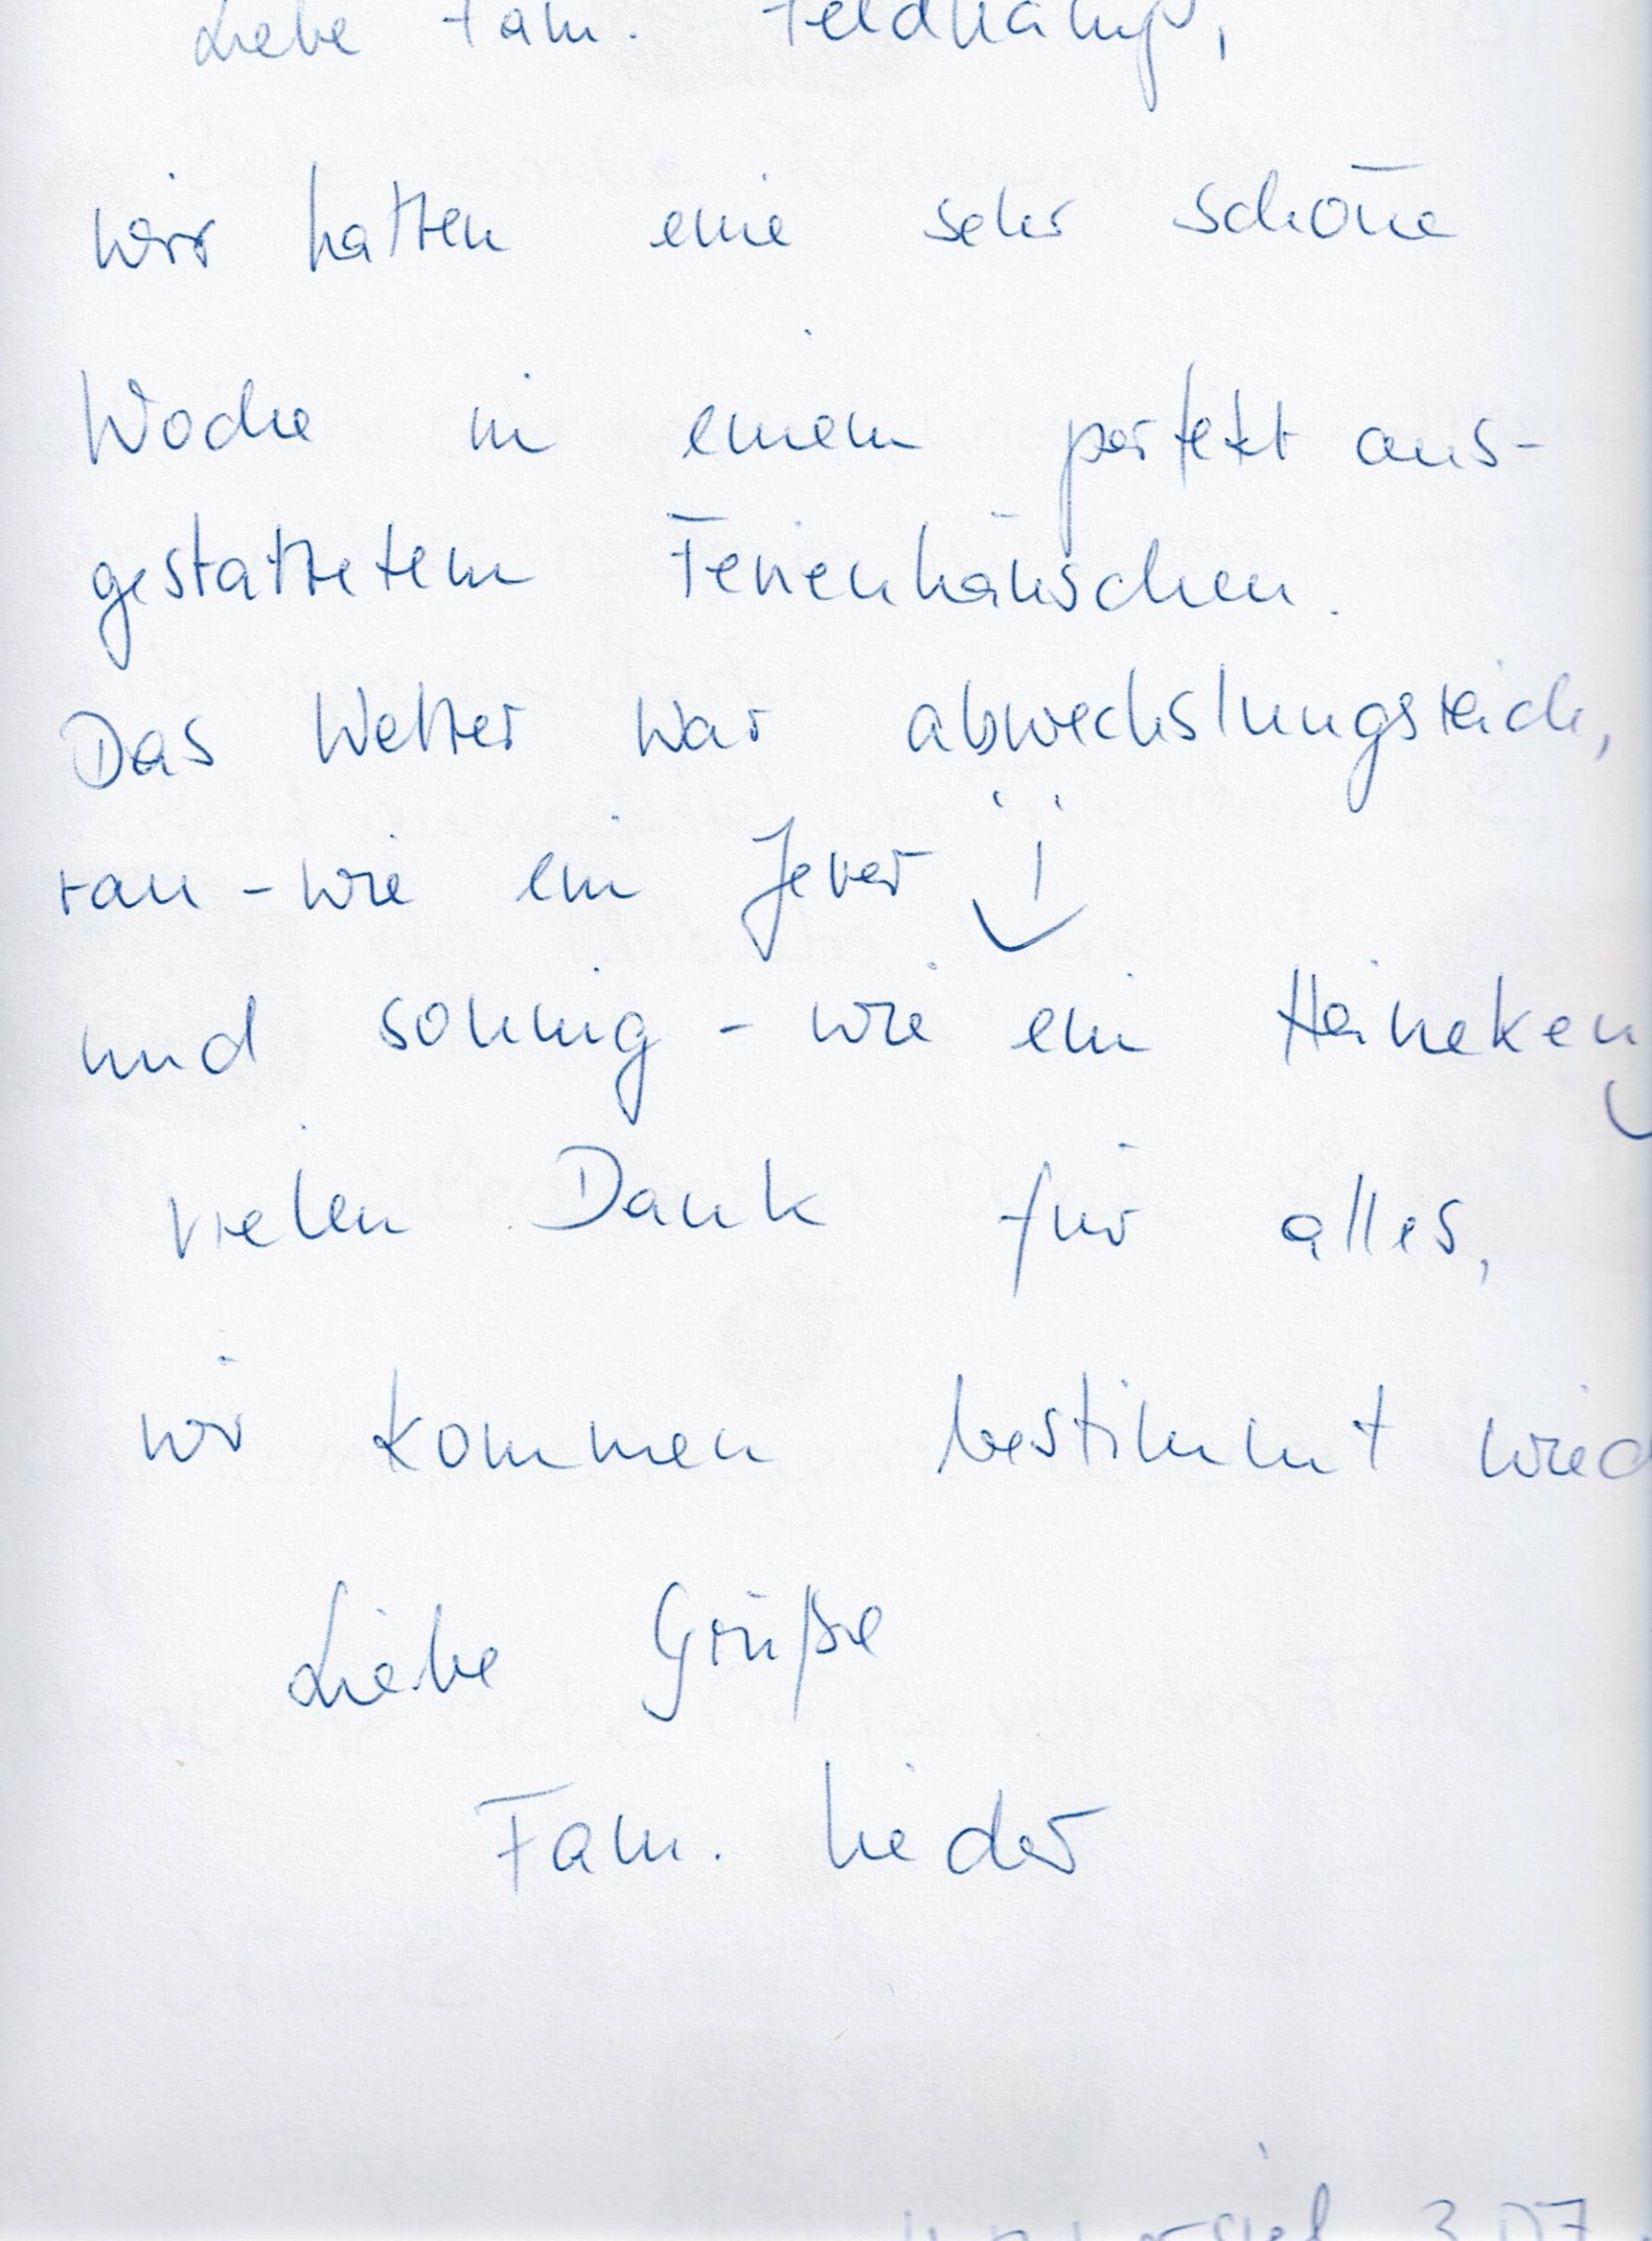 Liebe Fam. Feldkamp,
wir hatten eine sehr schöne
Woche in einem perfekt aus-
gestattetem Ferienhäuschen.
Das Wetter war abwechslungsreich,
rau - wie ein Jever
und sonnig - wie ein Heineken
vielen Dank für alles,
wir kommen bestimmt wied
Liebe Grüße
Fam.